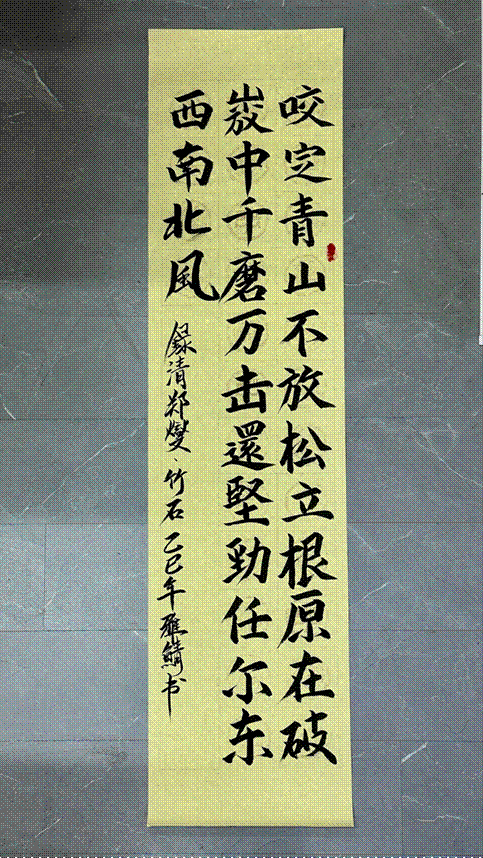 咬定青山不放松立根原在破
中千磨万击還堅勁任尔东
西南北風
録清郑燮·竹石 乙巳年雁书